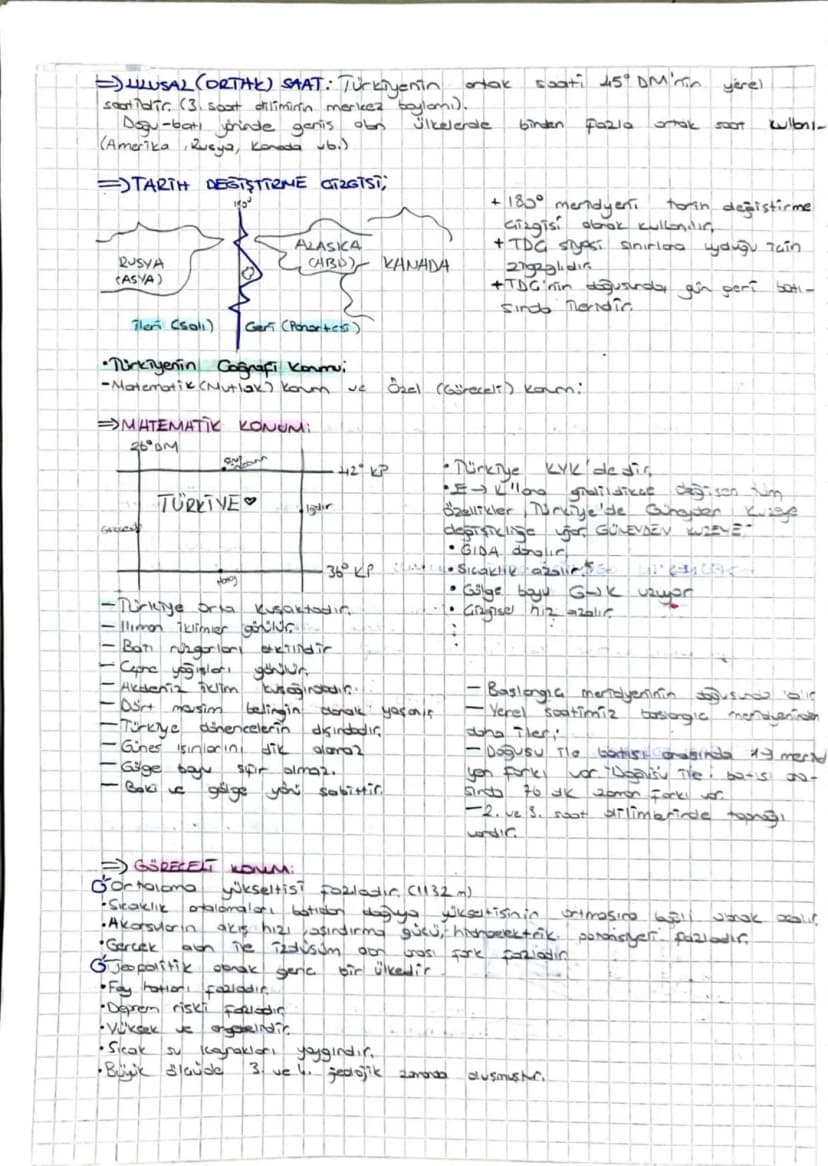 => ULUSAL (ORTAK) SAAT: Türkiyenin ortak saati 45° DM'nin yerel
saatidir. (3. saat diliminin merkez boylamı).
Doğu-batı yönünde geniş olan ülkelerde birden fazla ortak saat kullanı-
(Amerika, Rusya, Kanada vb.)
=> TARİH DEĞİŞTİRME ÇİZGİSİ;
180°
RUSYA
(ASYA)
ALASKA
(ABD)
KANADA
İleri (Salı) Geri (Pazartesi)
+ 180° meridyeni tarih değiştirme
çizgisi olarak kullanılır.
+ TDÇ siyasi sınırlara uyduğu için
zigzaglıdır.
+ TDÇ'nin doğusunda gün geri batı-
sında ileridir.
• Türkiyenin Coğrafi Konumu;
- Matematik (Mutlak) konum ve Özel (Göreceli) konum:
=> MATEMATİK KONUM:
26° DM
42° KP
TÜRKİYE♥
Iğdır
36° KP
Hatay
• Türkiye KYK'de dir.
• E -> K'lara gidildikçe değişen tüm
özellikler, Türkiye'de Güneyden Kuzeye
değişikliğe uğrar. GÜNEYDEN KUZEYE:
• GIDA azalır.
• Sıcaklık azalır.
• Gölge boyu G->K uzuyor
• Çizgisel hız azalır.
- Türkiye orta kuşaktadır.
- Ilıman iklimler görülür.
- Batı rüzgarları etkilidir
- Cephe yağışları görülür.
- Akdeniz iklim kuşağındadır.
- Dört mevsim belirgin olarak yaşanır
- Türkiye dönencelerin dışındadır.
- Güneş ışınlarını dik alamaz
- Gölge boyu sıfır olmaz.
- Bakı ve gölge yönü sabittir.
- Başlangıç meridyeninin doğusunda kalır
- Yerel saatimiz başlangıç meridyeninden
daha ileri.
- Doğusu ile batısı arasında 19 merid
yen farkı var. Doğusu ile batısı ara-
sında 76 dk zaman farkı var.
- 2. ve 3. saat dilimlerinde toprağı
vardır.
=> GÖRECELİ KONUM:
Ortalama yükseltisi fazladır. (1132 m)
• Sıcaklık ortalamaları batıdan doğuya yükseltisinin artmasına bağlı olarak azalır.
• Akarsuların akış hızı, aşındırma gücü, hidroelektrik potansiyeli fazladır.
• Gerçek alan ile izdüşüm alan arası fark fazladır
Jeopolitik olarak genç bir ülkedir
• Fay hatları fazladır.
• Deprem riski fazladır
• Yüksek ve engebelidir.
• Sıcak su kaynakları yaygındır.
• Büyük ölçüde 3. ve 4. jeolojik zamanda oluşmuştur.